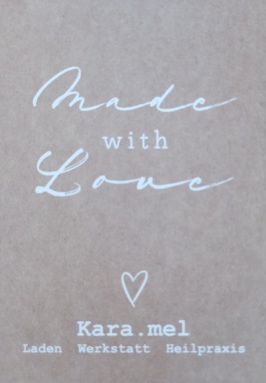 Made
with
Love
Kara.mel
Laden Werkstatt Heilpraxis